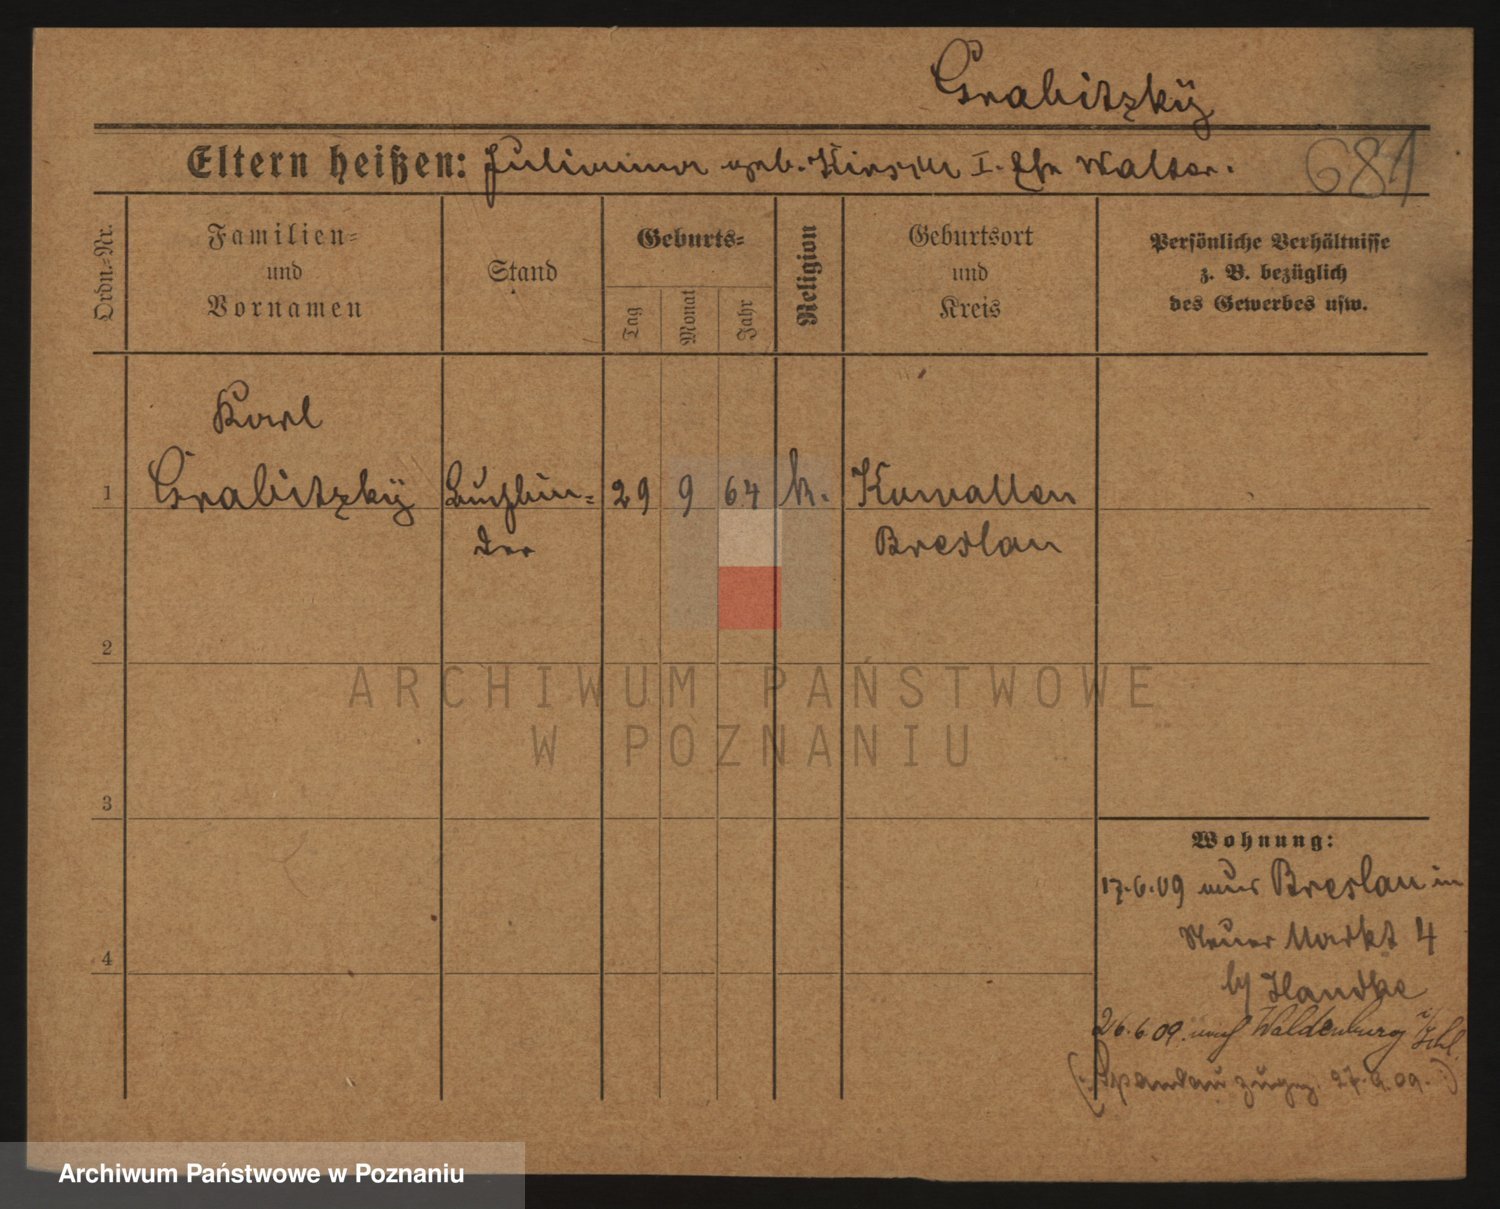 Grabitzky
Eltern heißen: Julianna geb. I. Ehe Walter.
681
Ordn.-Nr.
Familien-
und
Vornamen
Stand
Geburts-
Tag
Monat
Jahr
Religion
Geburtsort
und
Kreis
Persönliche Verhältnisse
z. B. bezüglich
des Gewerbes usw.
Karl
1 Grabitzky Buchbin- 29 9 64 k. Kunallen
der Breslau
2
ARCHIWUM PAŃSTWOWE
W POZNANIU
3
Wohnung:
17.6.09 aus Breslau in
Neuer Markt 4
4
by Handke
26.6.09. nach Waldenburg i/Schl.
(Spandau zugez. 27.9.09.)
Archiwum Państwowe w Poznaniu